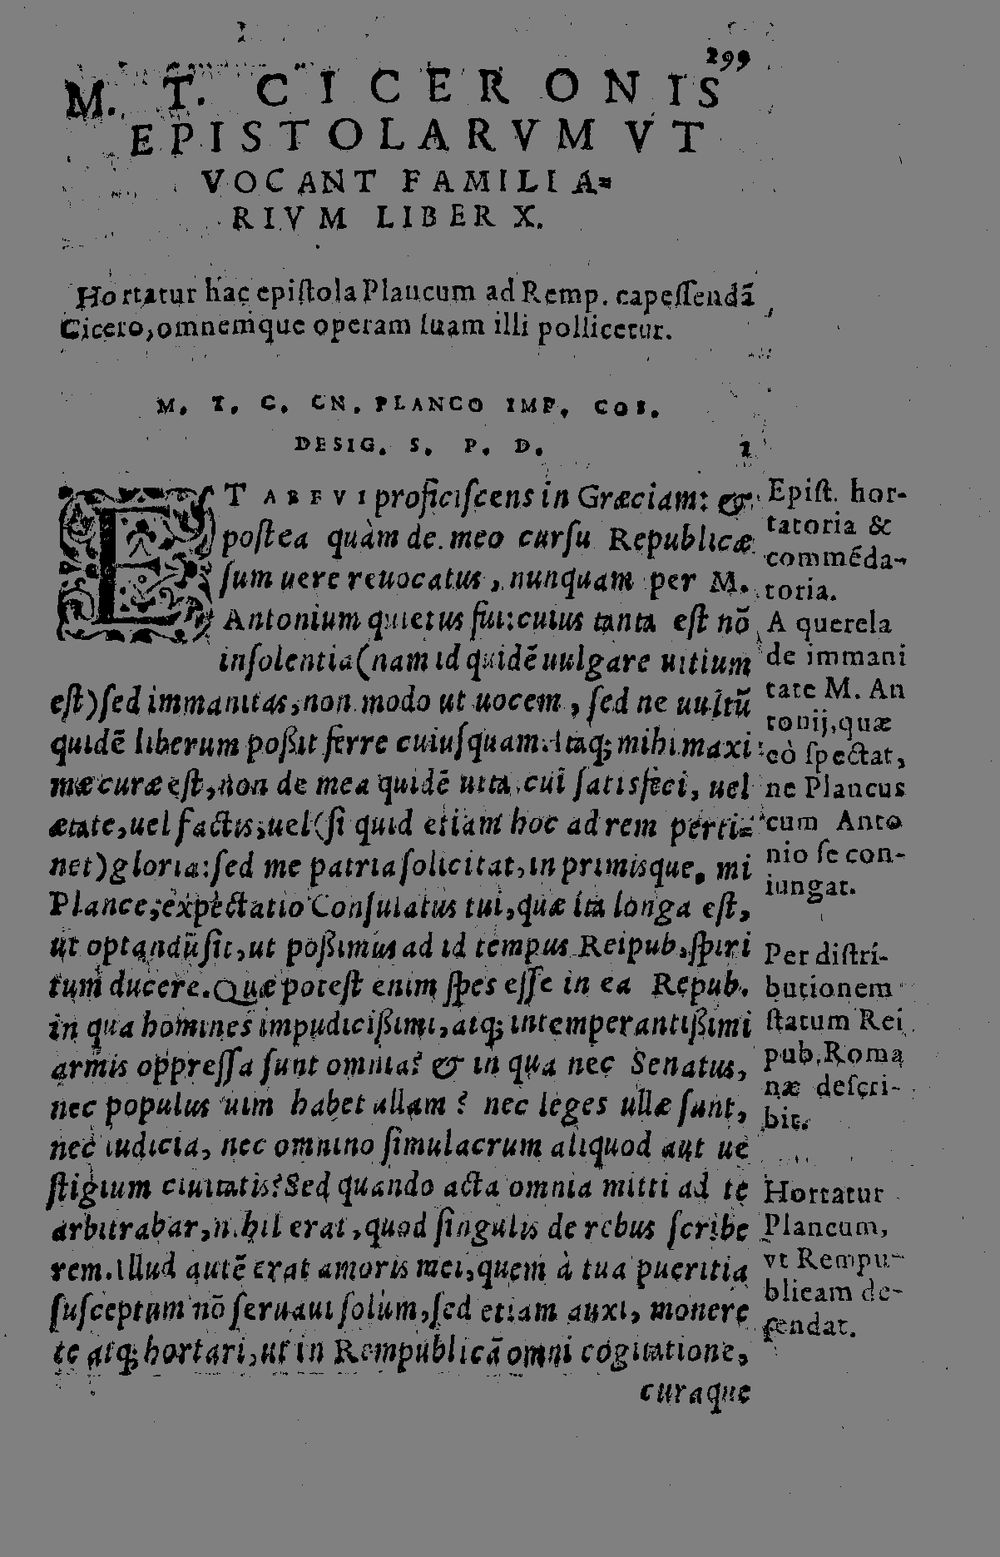 299
M. T. CICERONIS
EPISTOLARVM VT
VOCANT FAMILIA=
RIVM LIBER X.
Hortatur hac epiſtola Plancum ad Remp. capeſſendã
Cicero, omnemque operam ſuam illi pollicetur.
M. T. C. CN. PLANCO IMP. COS.
DESIG. S. P. D. 1
ET ABFVI proficiſcens in Græciam: &
poſtea quàm de meo curſu Republicæ
ſum uere reuocatus, nunquam per M.
Antonium quietus fui: cuius tanta eſt nõ
inſolentia (nam id quidẽ uulgare uitium
eſt) ſed immanitas, non modo ut uocem, ſed ne uultũ
quidẽ liberum poßit ferre cuiuſquam. Itaq; mihi maxi
mæ curæ eſt, non de mea quidẽ uita, cui ſatisfeci, uel
ætate, uel factis, uel (ſi quid etiam hoc ad rem perti=
net) gloria: ſed me patria ſolicitat, in primisque, mi
Plance, expectatio Conſulatus tui, quæ ita longa eſt,
ut optandũ ſit, ut poßimus ad id tempus Reipub. ſpiri
tum ducere. Quæ poteſt enim ſpes eſſe in ea Repub.
in qua homines impudicißimi, atq; intemperantißimi
armis oppreſſa ſunt omnia? & in qua nec Senatus,
nec populus uim habet ullam? nec leges ullæ ſunt,
nec iudicia, nec omnino ſimulacrum aliquod aut ue
ſtigium ciuitatis? Sed quando acta omnia mitti ad te
arbitrabar, nihil erat, quod ſingulis de rebus ſcribe
rem. Illud autẽ erat amoris mei, quem à tua pueritia
ſuſceptum nõ ſeruaui ſolùm, ſed etiam auxi, monere
te atq; hortari, ut in Rempublicã omni cogitatione,
curaque
Epiſt. hor-
tatoria &
commẽda-
toria.
A querela
de immani
tate M. An
tonij, quæ
eò ſpectat,
ne Plancus
cum Anto
nio ſe con-
iungat.
Per diſtri-
butionem
ſtatum Rei
pub. Roma
næ deſcri-
bit.
Hortatur
Plancum,
vt Rempu-
blicam de-
fendat.